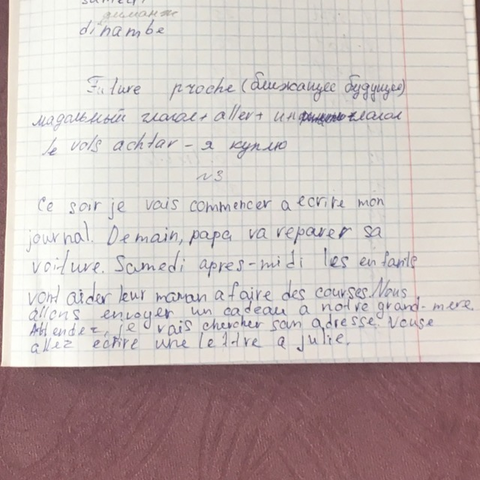 samedi
диманж
dinambe
Future proche (ближайщее будущее)
мадальный глагол + aller + ин глагол
le vais achtar - я куплю
№3
Ce soir je vais commencer a ecrire mon
journal. Demain, papa va reparer sa
voiture. Samedi apres-midi les enfants
vont aider leur maman a faire des courses. Nous
allons envoyer un cadeau a notre grand-mere.
Attendez, je vais chercher san adresse. Vouse
allez ecrire une lettre a julie.